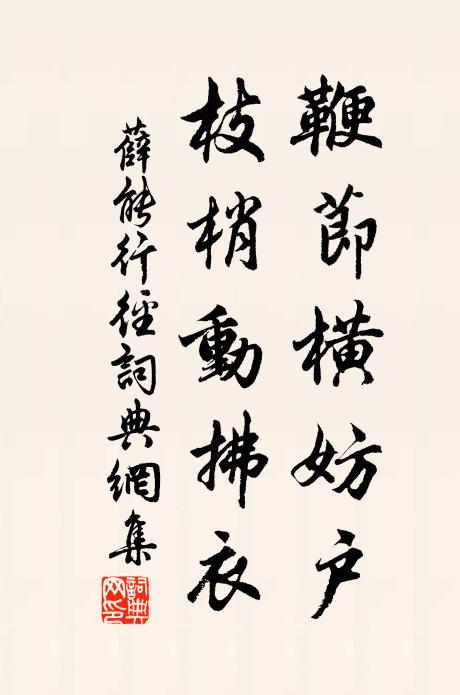 鞭節橫妨户
枝梢動拂衣
薛能行徑詞典網集
詞典
网印